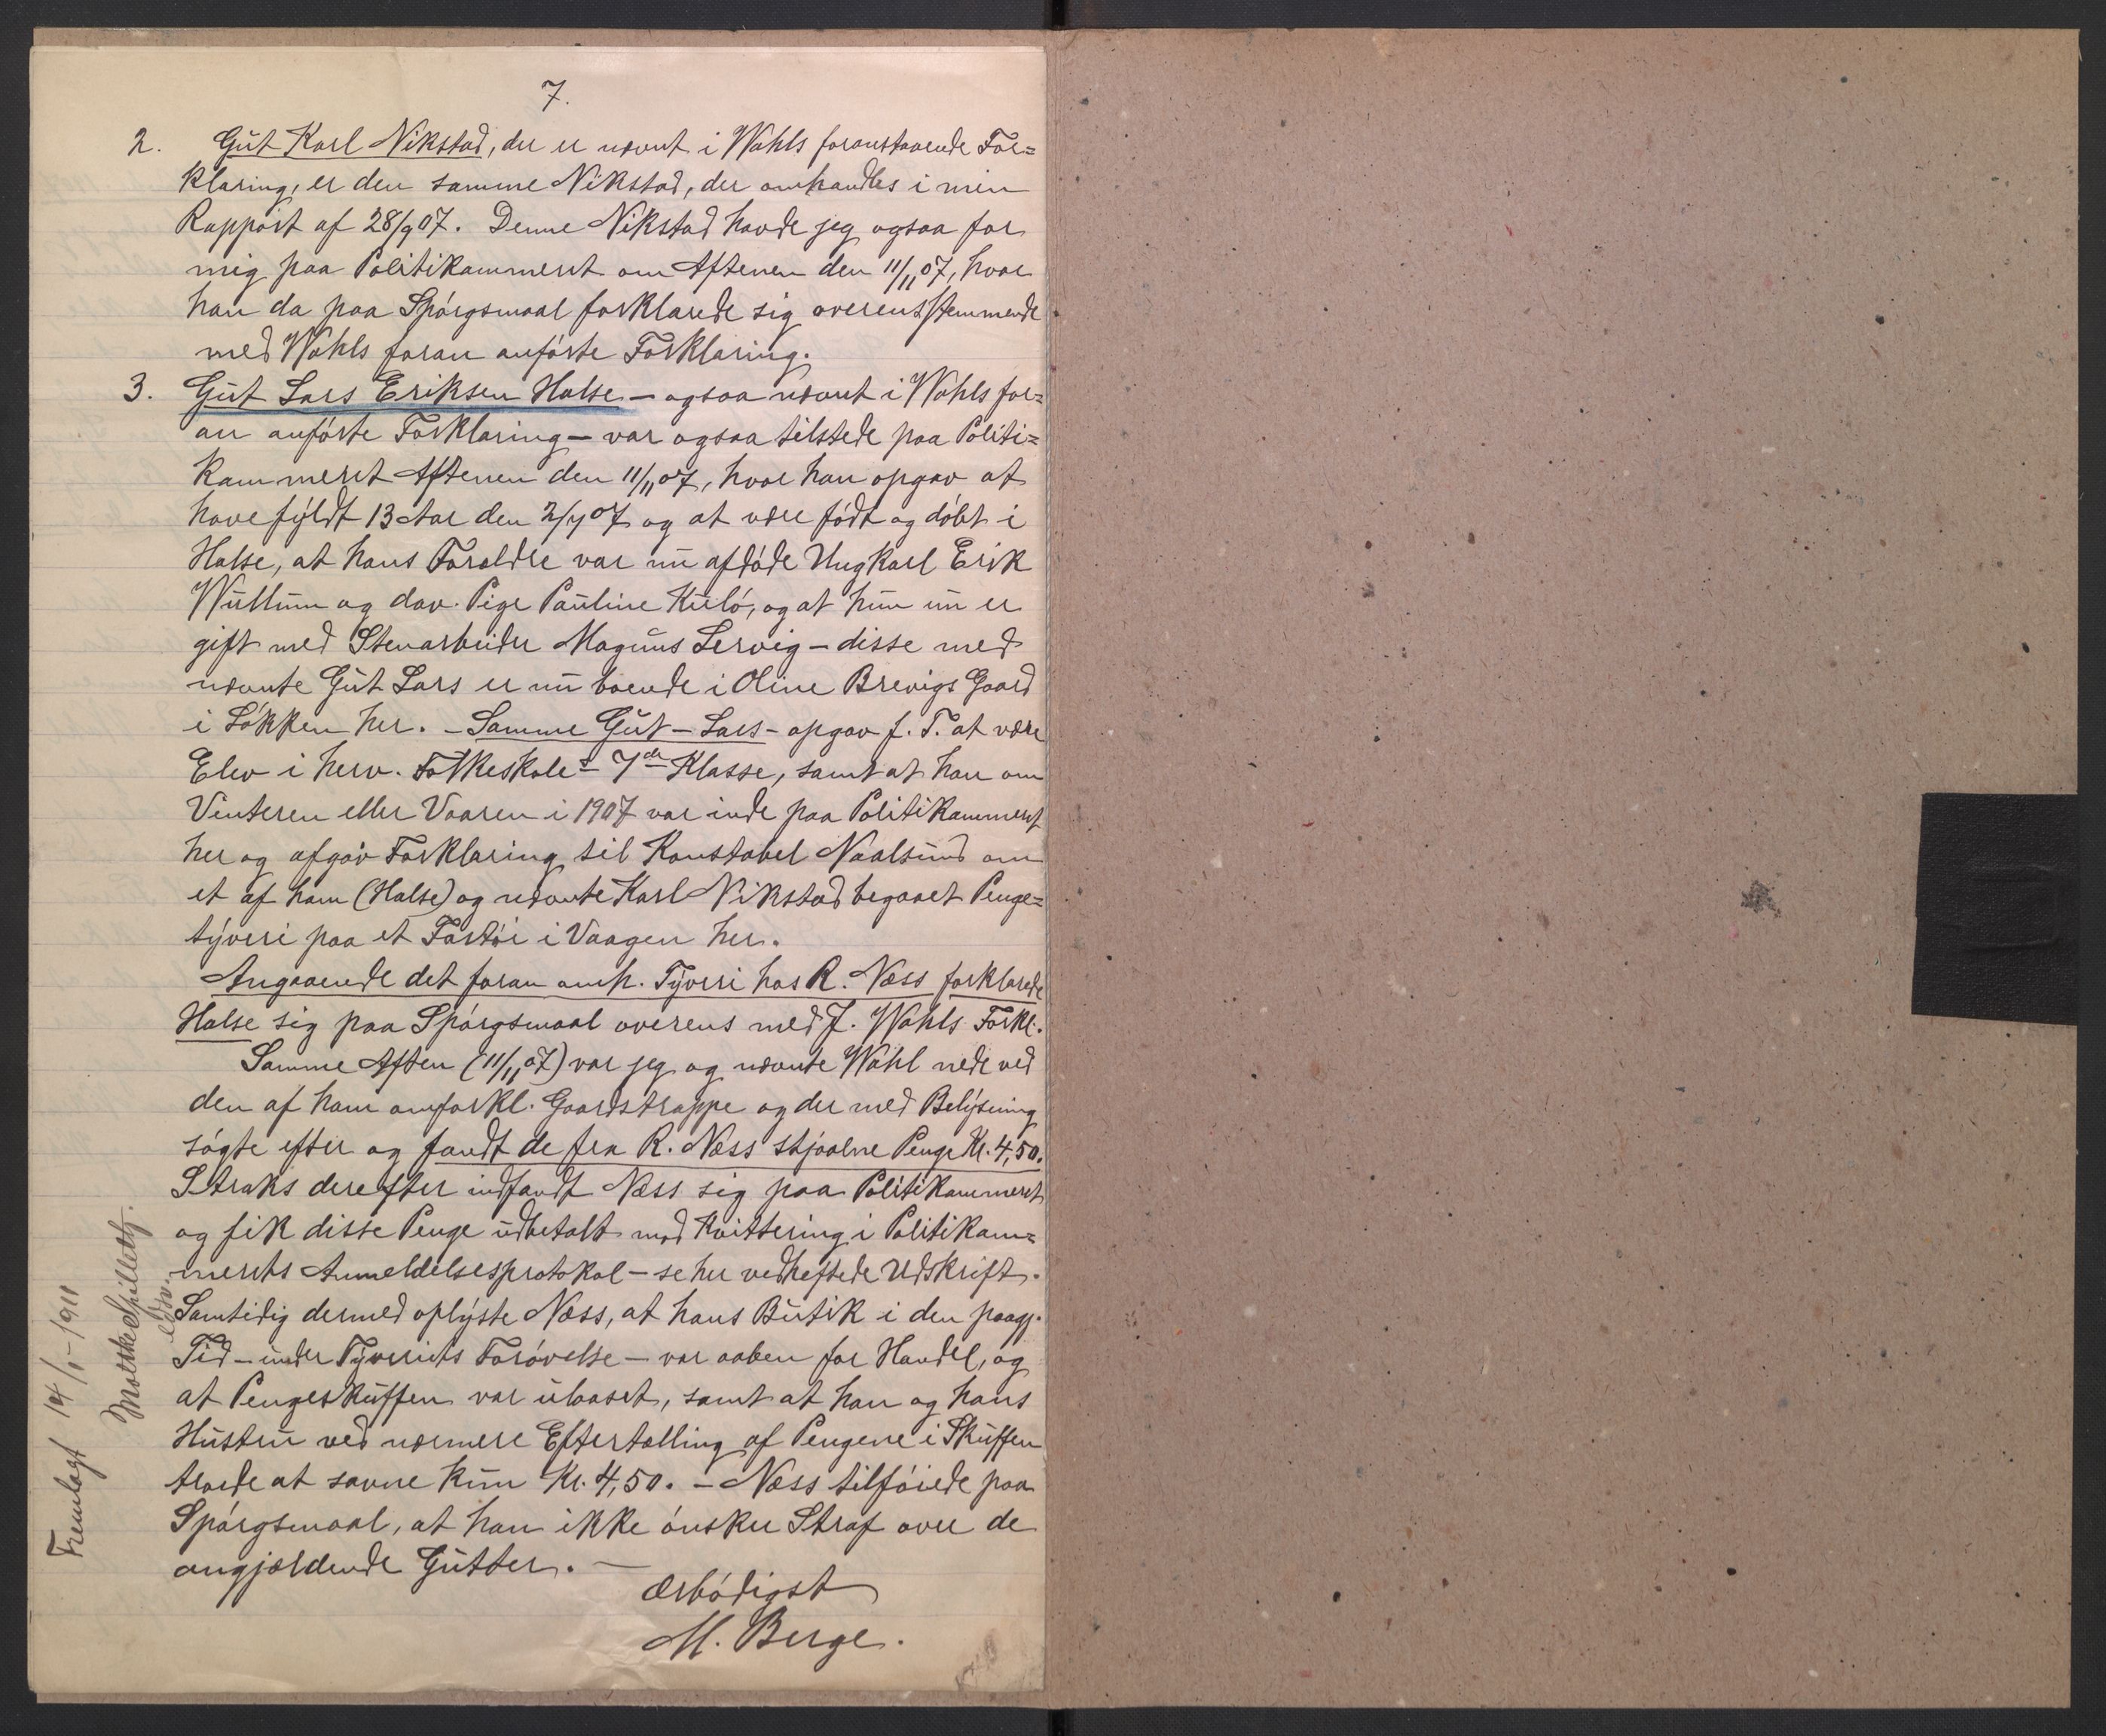 7.
2. Gut Karl Nikstad, der er nævnt i Wahls foranstaaende For=
klaring, er den samme Nikstad, der omhandles i min
Rapport af 28/9 07. Denne Nikstad havde jeg ogsaa for
mig paa Politikammeret om Aftenen den 11/11 07, hvor
han da paa Spörgsmaal forklarede sig overensstemmende
med Wahls foran anförte Forklaring.
3. Gut Lars Eriksen Halse – ogsaa nævnt i Wahls for=
an anförte Forklaring – var ogsaa tilstede paa Politi=
kammeret Aftenen den 11/11 07, hvor han opgav at
have fyldt 13 Aar den 2/7 07 og at være födt og döbt i
Halse, at hans Forældre var nu afdöde Ungkarl Erik
Wullum og dav. Pige Pauline Kulö, og at hun nu er
gift med Stenarbeider Magnus Lervig – disse med
nævnte Gut Lars er nu boende i Oline Brevigs Gaard
i Lökken her. – Samme Gut – Lars – opgav f. T. at være
Elev i herv. Folkeskole – 7de Klasse, samt at han om
Vinteren eller Vaaren i 1907 var inde paa Politikammeret
her og afgav Forklaring til Konstabel Naalsund om
et af ham (Halse) og nævnte Karl Nikstad begaaet Penge=
tyveri paa et Fartöi i Vaagen her.
Angaaende det foran omh. Tyveri hos R. Næss forklarede
Halse sig paa Spörgsmaal overens med J. Wahls Forkl.
Samme Aften (11/11 07) var jeg og nævnte Wahl nede ved
den af ham omforkl. Gaardstrappe og der med Belysning
sögte efter og fandt de fra R. Næss stjaalne Penge Kr. 4,50.
Straks derefter indfandt Næss sig paa Politikammeret
og fik disse Penge udbetalt mod Kvittering i Politikam=
merets Anmeldelsesprotokol – se her vedheftede Udskrift.
Samtidig dermed oplyste Næss, at hans Butik i den paagj.
Tid – under Tyveriets Forövelse – var aaben for Handel, og
at Pengeskuffen var ulaaset, samt at han og hans
Hustru ved nærmere Eftertælling af Pengene i Skuffen
troede at savne kun Kr. 4,50. – Næss tilföiede paa
Spörgsmaal, at han ikke önsker Straf over de
angjældende Gutter. –
Ærbödigst
M. Berge.
Fremlagt 14/1 - 1911